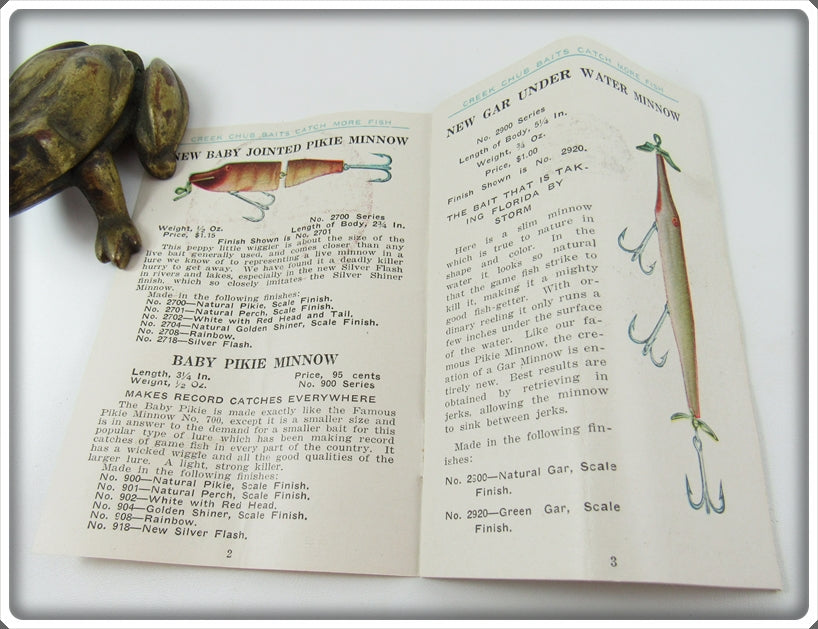 CREEK CHUB BAITS CATCH MORE FISH
NEW BABY JOINTED PIKIE MINNOW
No. 2700 Series
Weight, ½ Oz. Length of Body, 2¾ In.
Price, $1.15
Finish Shown is No. 2701
This peppy little wiggler is about the size of the
live bait generally used, and comes closer than any
lure we know of to representing a live minnow in a
hurry to get away. We have found it a deadly killer
in rivers and lakes, especially in the new Silver Flash
finish, which so closely imitates the Silver Shiner
Minnow.
Made in the following finishes:
No. 2700—Natural Pikie, Scale Finish.
No. 2701—Natural Perch, Scale Finish.
No. 2702—White with Red Head and Tail.
No. 2704—Natural Golden Shiner, Scale Finish.
No. 2708—Rainbow.
No. 2718—Silver Flash.
BABY PIKIE MINNOW
Length, 3¼ In. Price, 95 cents
Weight, ½ Oz. No. 900 Series
MAKES RECORD CATCHES EVERYWHERE
The Baby Pikie is made exactly like the Famous
Pikie Minnow No. 700, except it is a smaller size and
is in answer to the demand for a smaller bait for this
popular type of lure which has been making record
catches of game fish in every part of the country. It
has a wicked wiggle and all the good qualities of the
larger lure. A light, strong killer.
Made in the following finishes:
No. 900—Natural Pikie, Scale Finish.
No. 901—Natural Perch, Scale Finish.
No. 902—White with Red Head.
No. 904—Golden Shiner, Scale Finish.
No. 908—Rainbow.
No. 918—New Silver Flash.
2
CREEK CHUB BAITS CATCH MORE FISH
NEW GAR UNDER WATER MINNOW
No. 2900 Series
Length of Body, 5¼ In.
Weight, ¾ Oz.
Price, $1.00
Finish Shown is No. 2920.
THE BAIT THAT IS TAK-
ING FLORIDA BY
STORM
Here is a slim minnow
which is true to nature in
shape and color. In the
water it looks so natural
that the game fish strike to
kill it, making it a mighty
good fish-getter. With or-
dinary reeling it only runs a
few inches under the surface
of the water. Like our fa-
mous Pikie Minnow, the cre-
ation of a Gar Minnow is en-
tirely new. Best results are
obtained by retrieving in
jerks, allowing the minnow
to sink between jerks.
Made in the following fin-
ishes:
No. 2900—Natural Gar, Scale
Finish.
No. 2920—Green Gar, Scale
Finish.
3